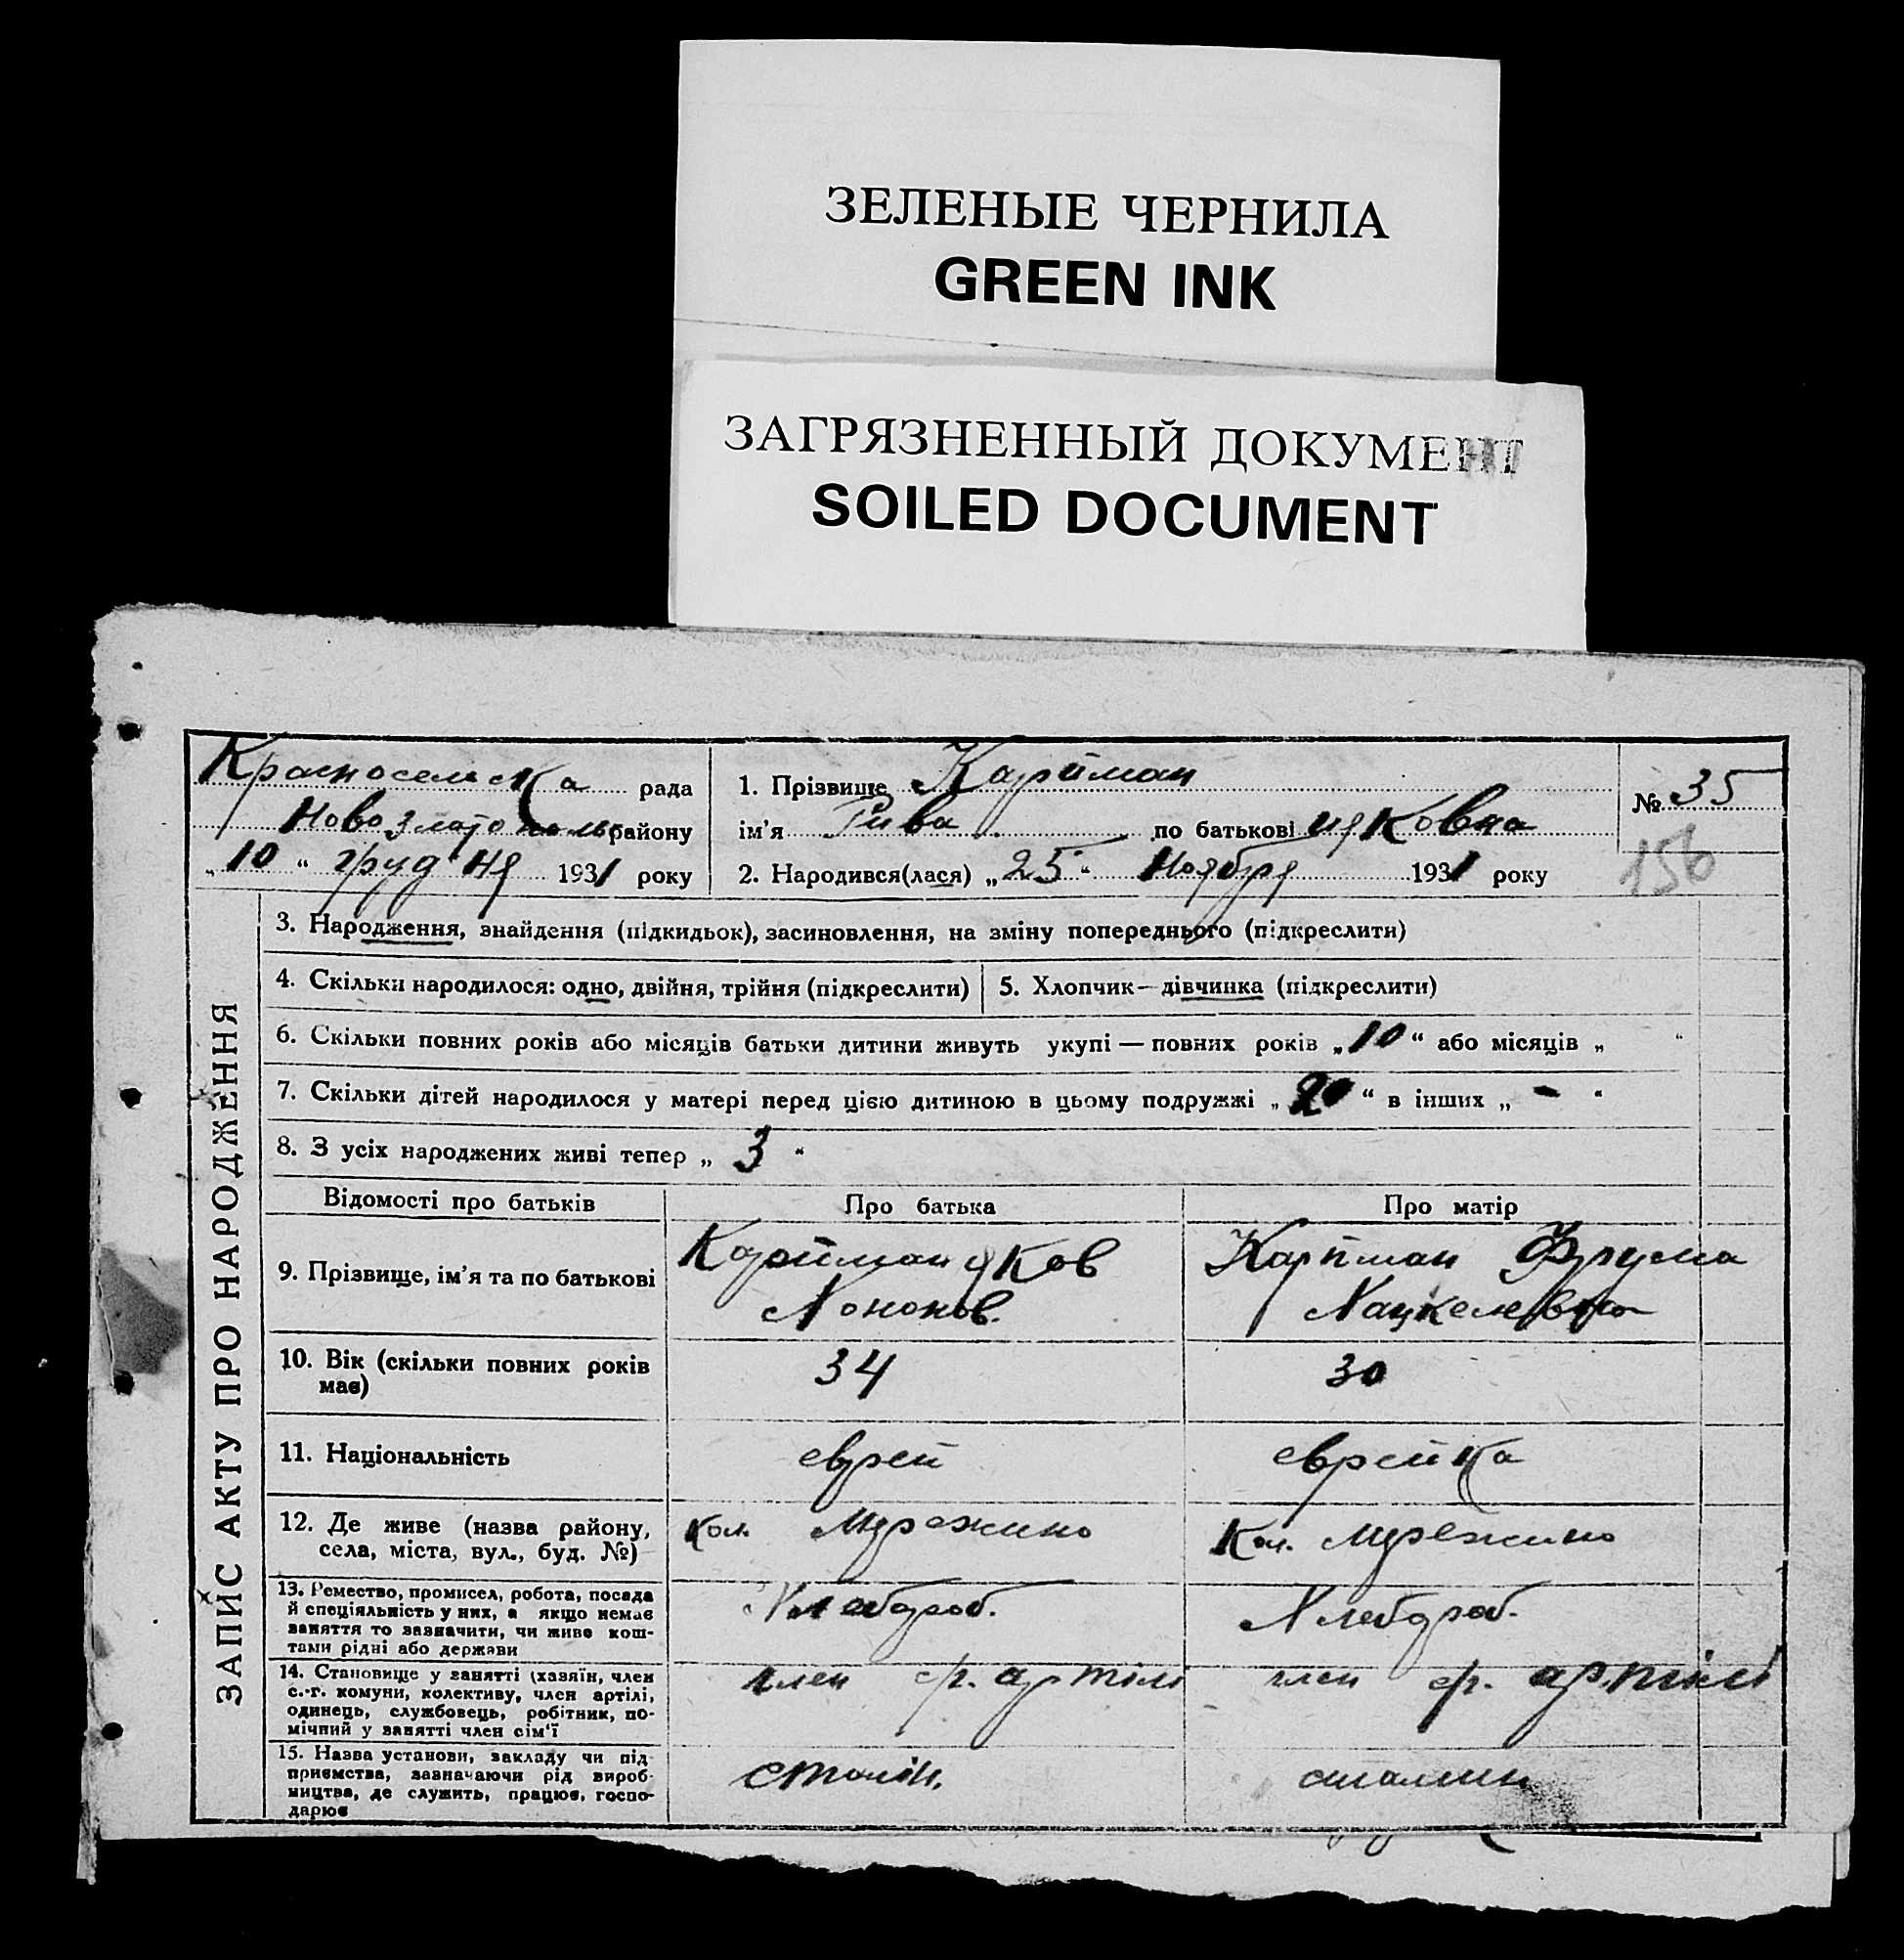 ЗЕЛЕНЫЕ ЧЕРНИЛА
GREEN INK
ЗАГРЯЗНЕННЫЙ ДОКУМЕНТ
SOILED DOCUMENT
Красносельска рада
Ново златопольс району
„10“ грудня 1931 року
1. Прізвище Картман
ім'я Рива по батькові Яковна
2. Народився(лася) „25“ Ноября 1931 року
№ 35
156
ЗАПИС АКТУ ПРО НАРОДЖЕННЯ
3. Народження, знайдення (підкидьок), засиновлення, на зміну попереднього (підкреслити)
4. Скільки народилося: одно, двійня, трійня (підкреслити)
5. Хлопчик—дівчинка (підкреслити)
6. Скільки повних років або місяців батьки дитини живуть укупі — повних років „10“ або місяців „ “
7. Скільки дітей народилося у матері перед цією дитиною в цьому подружжі „ “ в інших „ - “
8. З усіх народжених живі тепер „ 3 “
Відомості про батьків Про батька Про матір
9. Прізвище, ім'я та по батькові
Картман Яков
Хононов.
Картман Фрума
Хацкелевна
10. Вік (скільки повних років має)
34
30
11. Національність
еврей
еврейка
12. Де живе (назва району,
села, міста, вул., буд. №)
кол. Мережино
Кол. Мережино
13. Ремество, промисел, робота, посада
й спеціяльність у них, а якщо немає
заняття то зазначити, чи живе кош-
тами рідні або держави
Хлебороб.
Хлебороб.
14. Становище у занятті (хазяїн, член
с.-г. комуни, колективу, член артілі,
одинець, службовець, робітник, по-
мічний у занятті член сім'ї
член ср. артілі
член ср. артілі
15. Назва установи, закладу чи під-
приємства, зазначаючи рід вироб-
ництва, де служить, працює, госпо-
дарює
Сталін.
Сталин